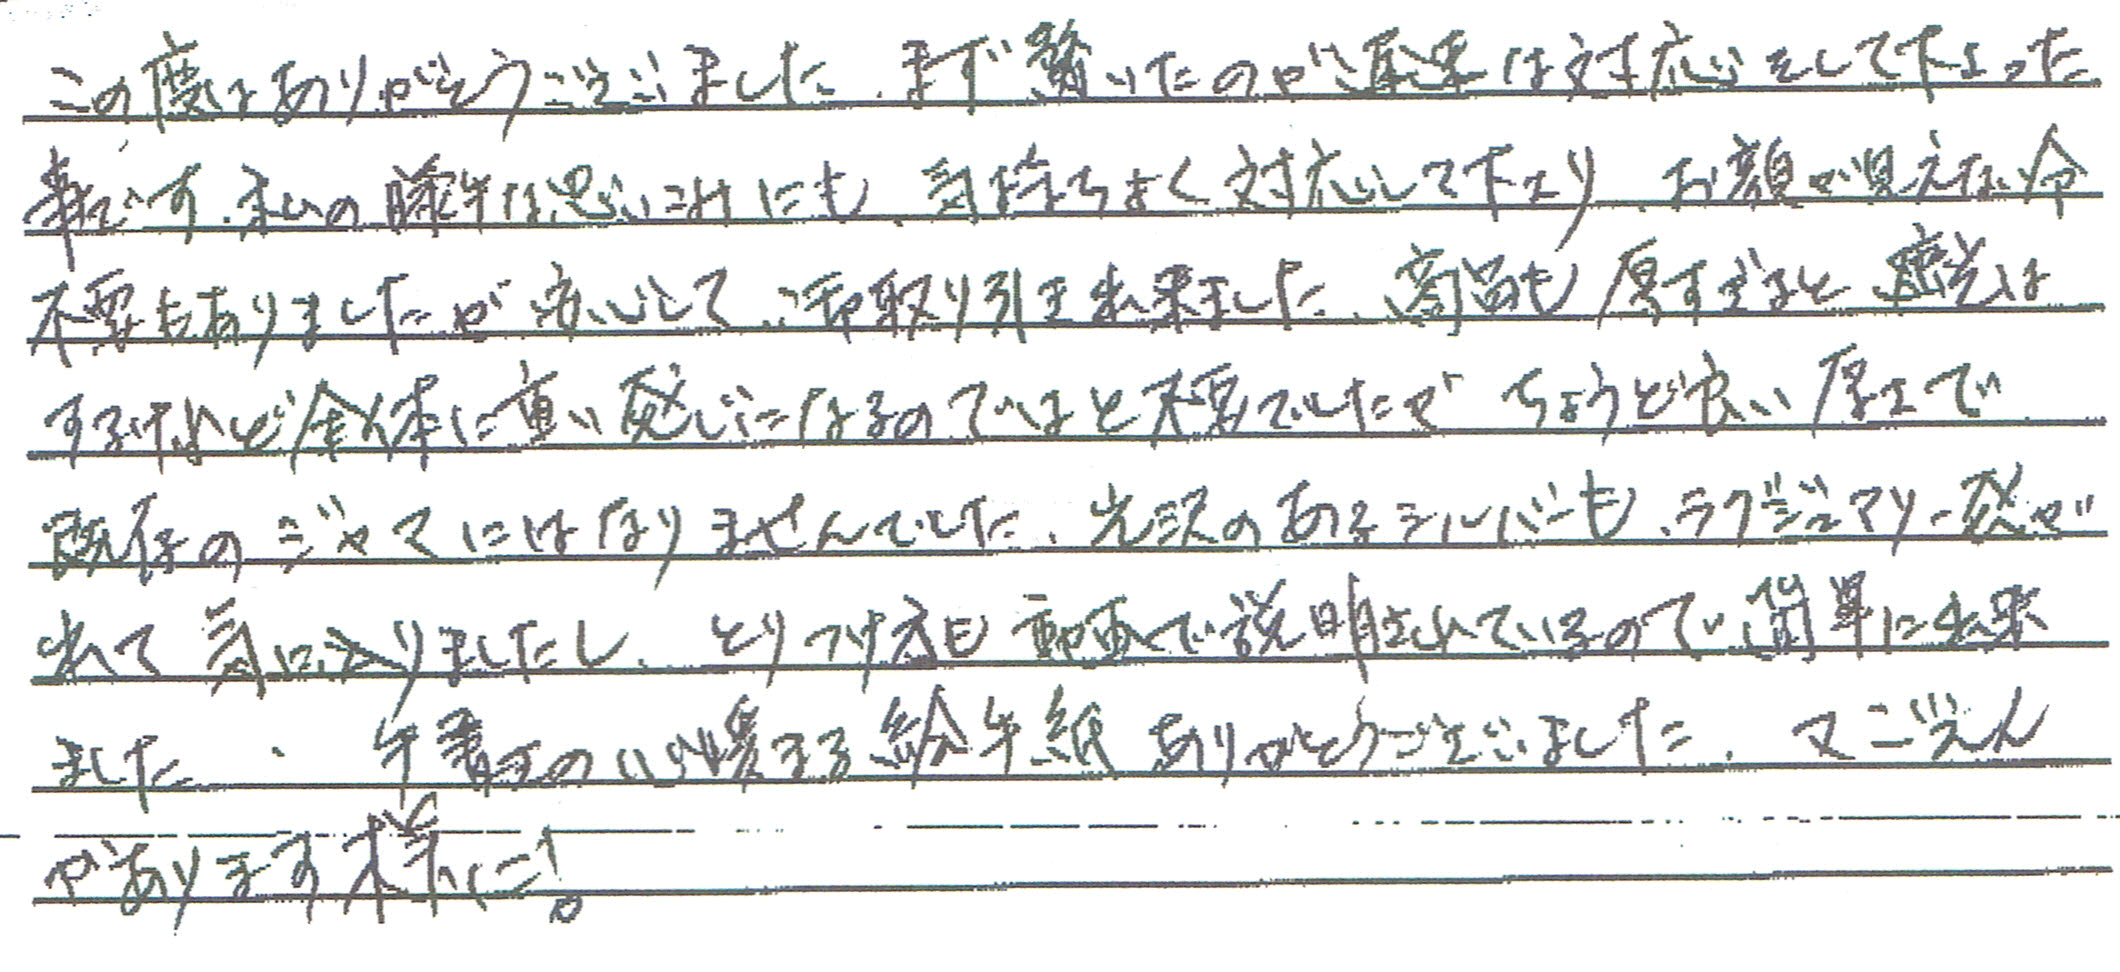 この度はありがとうございました。まず驚いたのが迅速な対応をして下さった
事です。私の勝手な思いこみにも、気持ちよく対応して下さり、お顔が見えない分
不安もありましたが安心してお取り引き出来ました。商品も厚すぎると
するけれど全体に重い感じになるのではと不安でしたが ちょうど良い厚さで
既存のジャマにはなりませんでした。光沢のあるシルバーも、ラグジュアリー感が
出て 気に入りましたし、とりつけ方も動画で説明されているので簡単に出来
ました。 手書きの心暖まるお手紙ありがとうございました。又ごえん
があります様に!